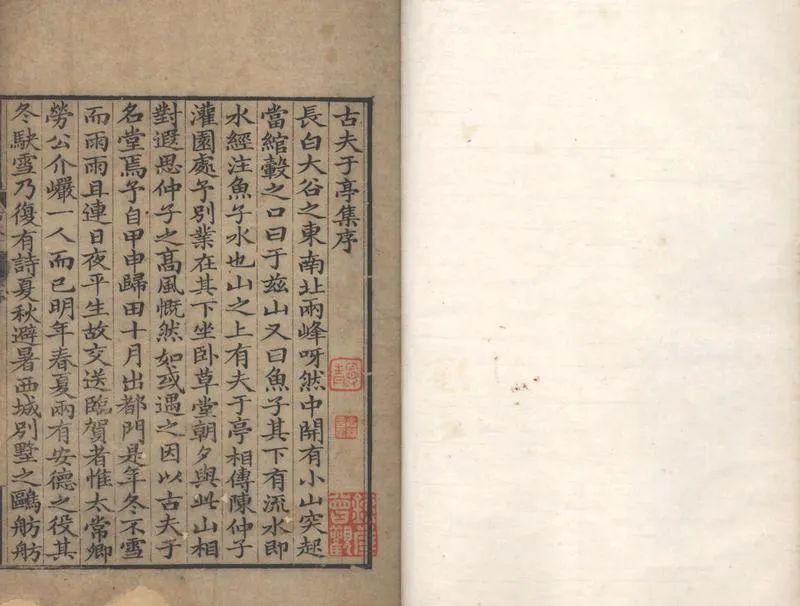 古夫于亭集序
長白大谷之東南北兩峰呀然中開有小山突起
當綰轂之口曰于玆山又曰魚子其下有流水即
水經注魚子水也山之上有夫于亭相傳陳仲子
灌園處予別業在其下坐卧草堂朝夕與此山相
對遐思仲子之高風慨然如或遇之因以古夫于
名堂焉予自甲申歸田十月出都門是年冬不雪
而雨雨且連日夜平生故交送臨賀者惟太常卿
勞公介巖一人而已明年春夏兩有安德之役其
冬駃雪乃復有詩夏秋避暑西城別墅之鷗舫舫